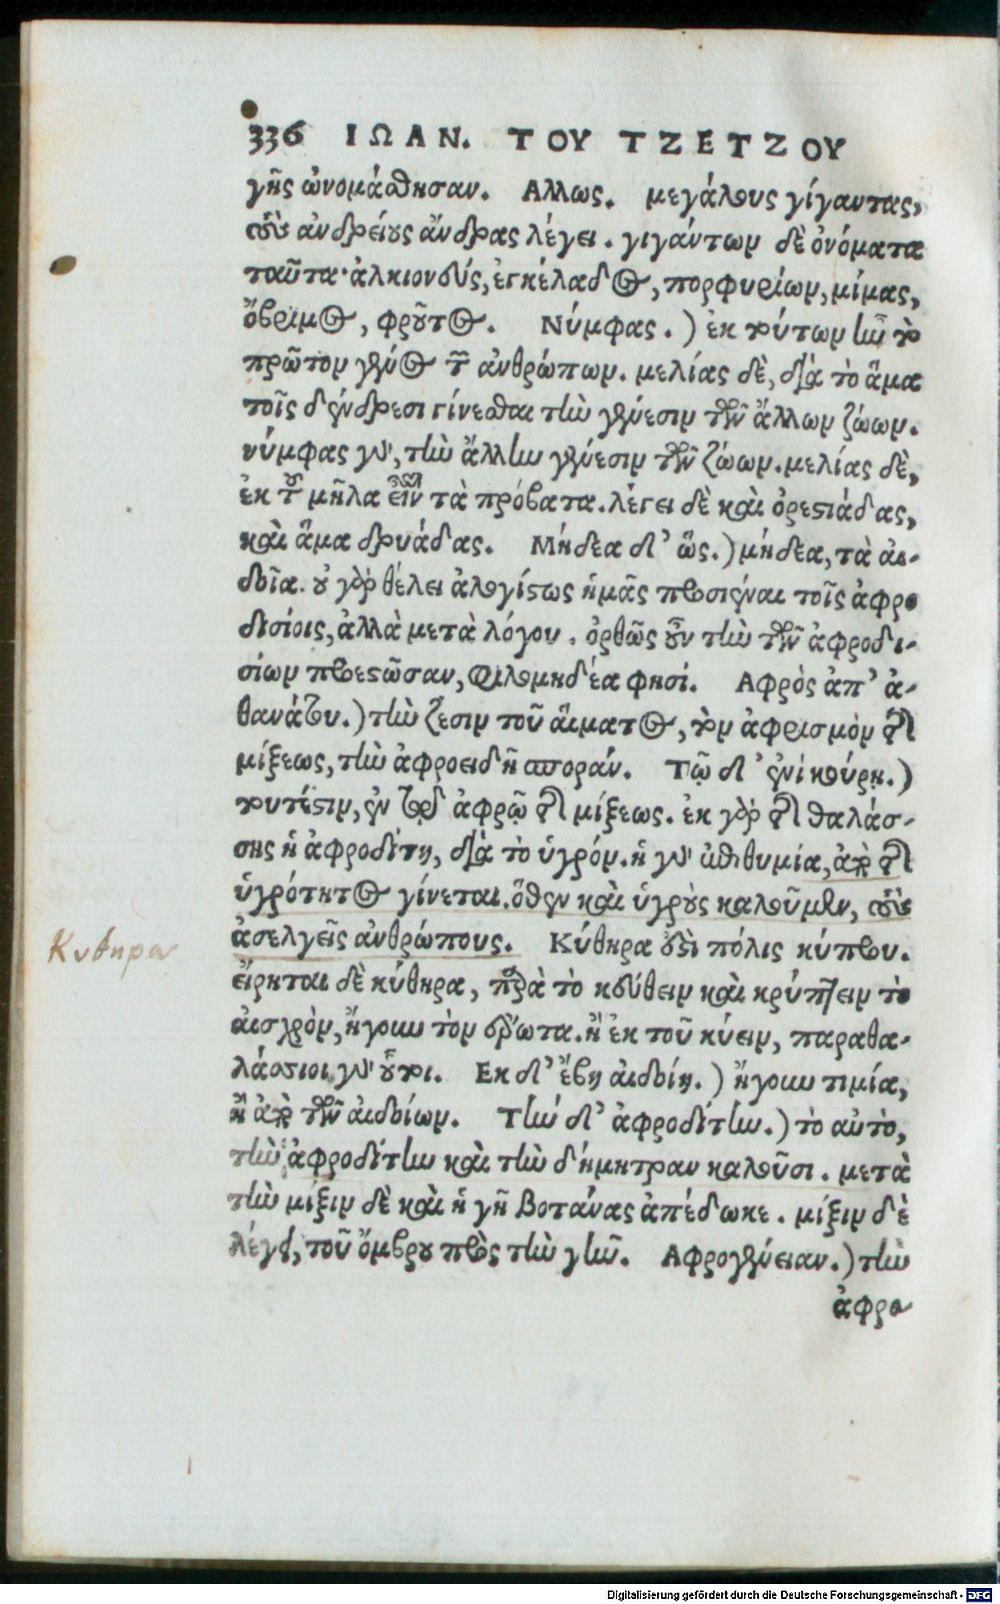 336 ΙΩΑΝ. ΤΟΥ ΤΖΕΤΖΟΥ
γῆς ὠνομάσθησαν. Αλλως. μεγάλους γίγαντας,
τοὺς ἀνδρείους ἄνδρας λέγει. γιγάντων δὲ ὀνόματα
ταῦτα· ἀλκιονεύς, ἐγκέλαδος, πορφυρίων, μίμας,
ὄβριμος, φροῦτος. Νύμφας.) ἐκ τούτων ἦν τὸ
πρῶτον γένος τῶν ἀνθρώπων. μελίας δὲ, διὰ τὸ ἅμα
τοῖς δένδρεσι γίνεσθαι τὴν γένεσιν τῶν ἄλλων ζώων.
νύμφας γὰρ, τὴν ἄλλην γένεσιν τῶν ζώων. μελίας δὲ,
ἐκ τοῦ μῆλα εἶναι τὰ πρόβατα. λέγει δὲ καὶ ὀρεστιάδας,
καὶ ἅμα δρυάδας. Μήδεα δ' ὥς.) μήδεα, τὰ αἰ-
δοῖα. οὐ γὰρ θέλει ἀλογίστως ἡμᾶς προσιέναι τοῖς ἀφρο
δισίοις, ἀλλὰ μετὰ λόγου. ὀρθῶς οὖν τὴν τῶν ἀφροδι-
σίων προεστῶσαν, Φιλομηδέα φησί. Αφρὸς ἀπ' ἀ-
θανάτου.) τὴν ζέσιν τοῦ αἵματος, τὸν ἀφρισμὸν τῆς
μίξεως, τὴν ἀφροειδῆ σποράν. Τῷ δ' ἐνὶ κούρη.)
τουτέστιν, ἐν τῷ ἀφρῷ τῆς μίξεως. ἐκ γὰρ τῆς θαλάσ-
σης ἡ ἀφροδίτη, διὰ τὸ ὑγρόν. ἡ γὰρ ἐπιθυμία, ἀπὸ τῆς
ὑγρότητος γίνεται. ὅθεν καὶ ὑγροὺς καλοῦμεν, τοὺς
ἀσελγεῖς ἀνθρώπους. Κύθηρα ἐστὶ πόλις κύπρου.
Κυθηρα
εἴρηται δὲ κύθηρα, παρὰ τὸ κεύθειν καὶ κρύπτειν τὸ
αἰσχρὸν, ἤγουν τὸν ἔρωτα. ἢ ἐκ τοῦ κύειν, παραθα-
λάσσιοι γὰρ οὗτοι. Εκ δ' ἔβη αἰδοίη.) ἤγουν τιμία,
ἢ ἀπὸ τῶν αἰδοίων. Τὴν δ' ἀφροδίτην.) τὸ αὐτὸ,
τὴν ἀφροδίτην καὶ τὴν δήμητραν καλοῦσι. μετὰ
τὴν μίξιν δὲ καὶ ἡ γῆ βοτάνας ἀπέδωκε. μίξιν δὲ
λέγει, τοῦ ὄμβρου πρὸς τὴν γῆν. Αφρογένειαν.) τὴν
ἀφρο
Digitalisierung gefördert durch die Deutsche Forschungsgemeinschaft - DFG